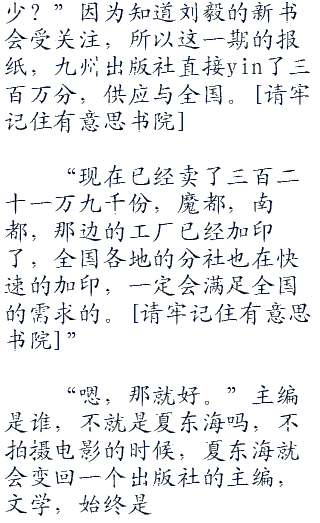 少？”因为知道刘毅的新书
会受关注，所以这一期的报
纸，九州出版社直接yin了三
百万分，供应与全国。[请牢
记住有意思书院]
“现在已经卖了三百二
十一万九千份，魔都，南
都，那边的工厂已经加印
了，全国各地的分社也在快
速的加印，一定会满足全国
的需求的。[请牢记住有意思
书院]”
“嗯，那就好。”主编
是谁，不就是夏东海吗，不
拍摄电影的时候，夏东海就
会变回一个出版社的主编，
文学，始终是